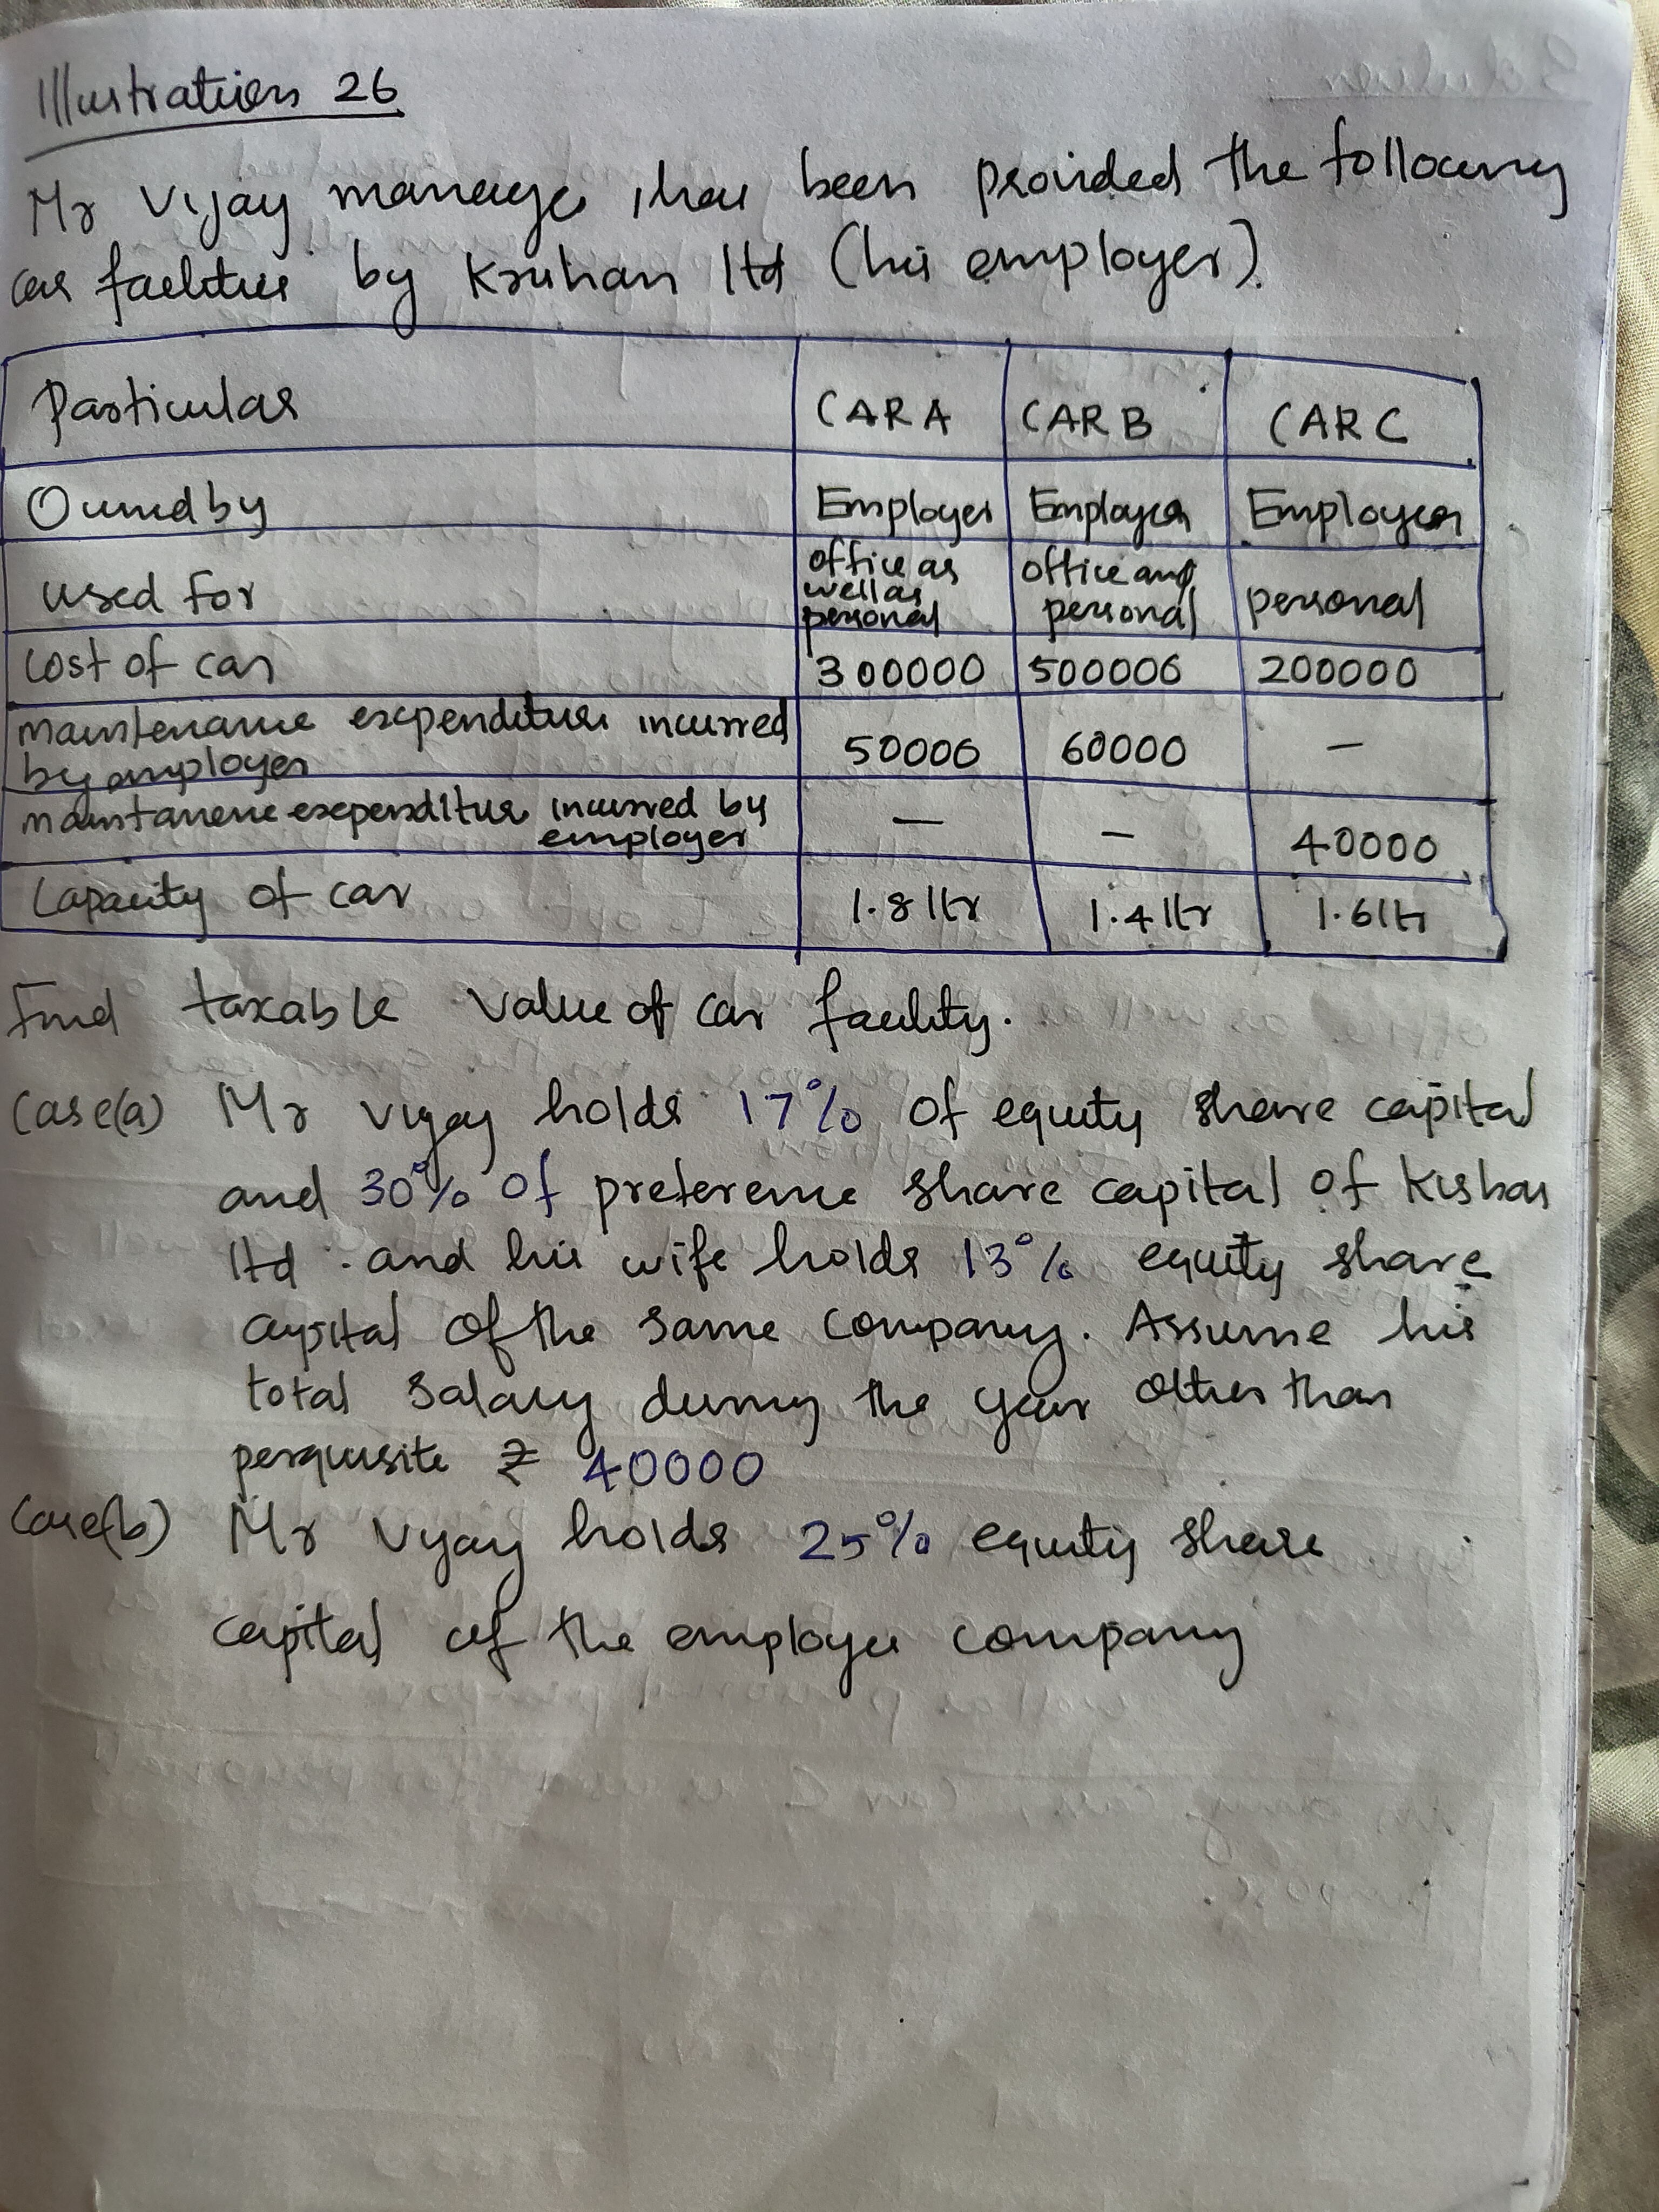 Illustration 26
Mr Vijay manager has been provided the following
car facilities by Krishan ltd (his employer).
Particular CAR A CAR B CAR C
Owned by Employer Employer Employer
used for office as well as personal office and personal personal
Cost of car 300000 500000 200000
maintenance expenditure incurred by employer 50000 60000 —
maintanence expenditure incurred by employer — — 40000
Capacity of car 1.8 ltr 1.4 ltr 1.6 ltr
Find taxable value of car facility.
Case(a) Mr Vijay holds 17% of equity share capital
and 30% of preference share capital of
ltd . and his wife holds 13% equity share
capital of the same company. Assume his
total salary during the year other than
perquisite ₹ 40000
Case(b) Mr Vijay holds 25% equity share
capital of the employer company